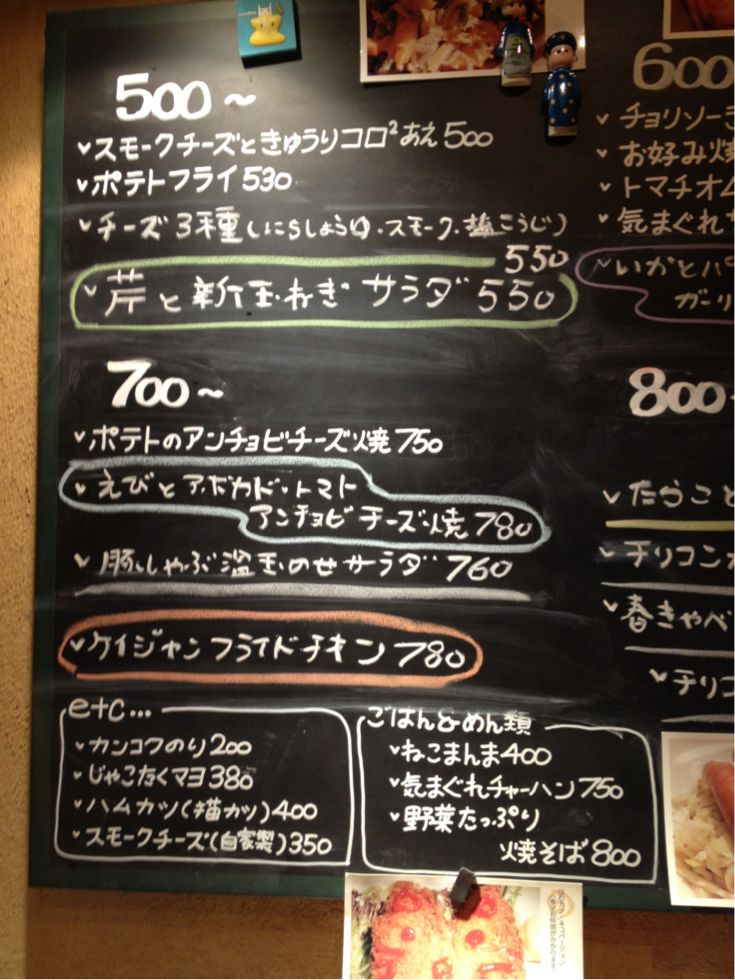 500～
スモークチーズときゅうりコロ²あえ 500
ポテトフライ 530
チーズ3種(にんにくしょうゆ・スモーク・塩こうじ)
550
芹と新玉ねぎサラダ 550
700～
ポテトのアンチョビチーズ焼 750
えびとアボカド・トマト
アンチョビチーズ焼 780
豚しゃぶ温玉のせサラダ 760
ケイジャンフライドチキン 780
etc...
カンコクのり 200
じゃこたくマヨ 380
ハムカツ(猫カツ) 400
スモークチーズ(自家製) 350
ごはん&めん類
ねこまんま 400
気まぐれチャーハン 750
野菜たっぷり
焼そば 800
600
チョリソー
お好み焼
トマチオム
気まぐれ
いかとパ
ガーリ
800
たらこと
チリコン
春きゃべ
チリコ